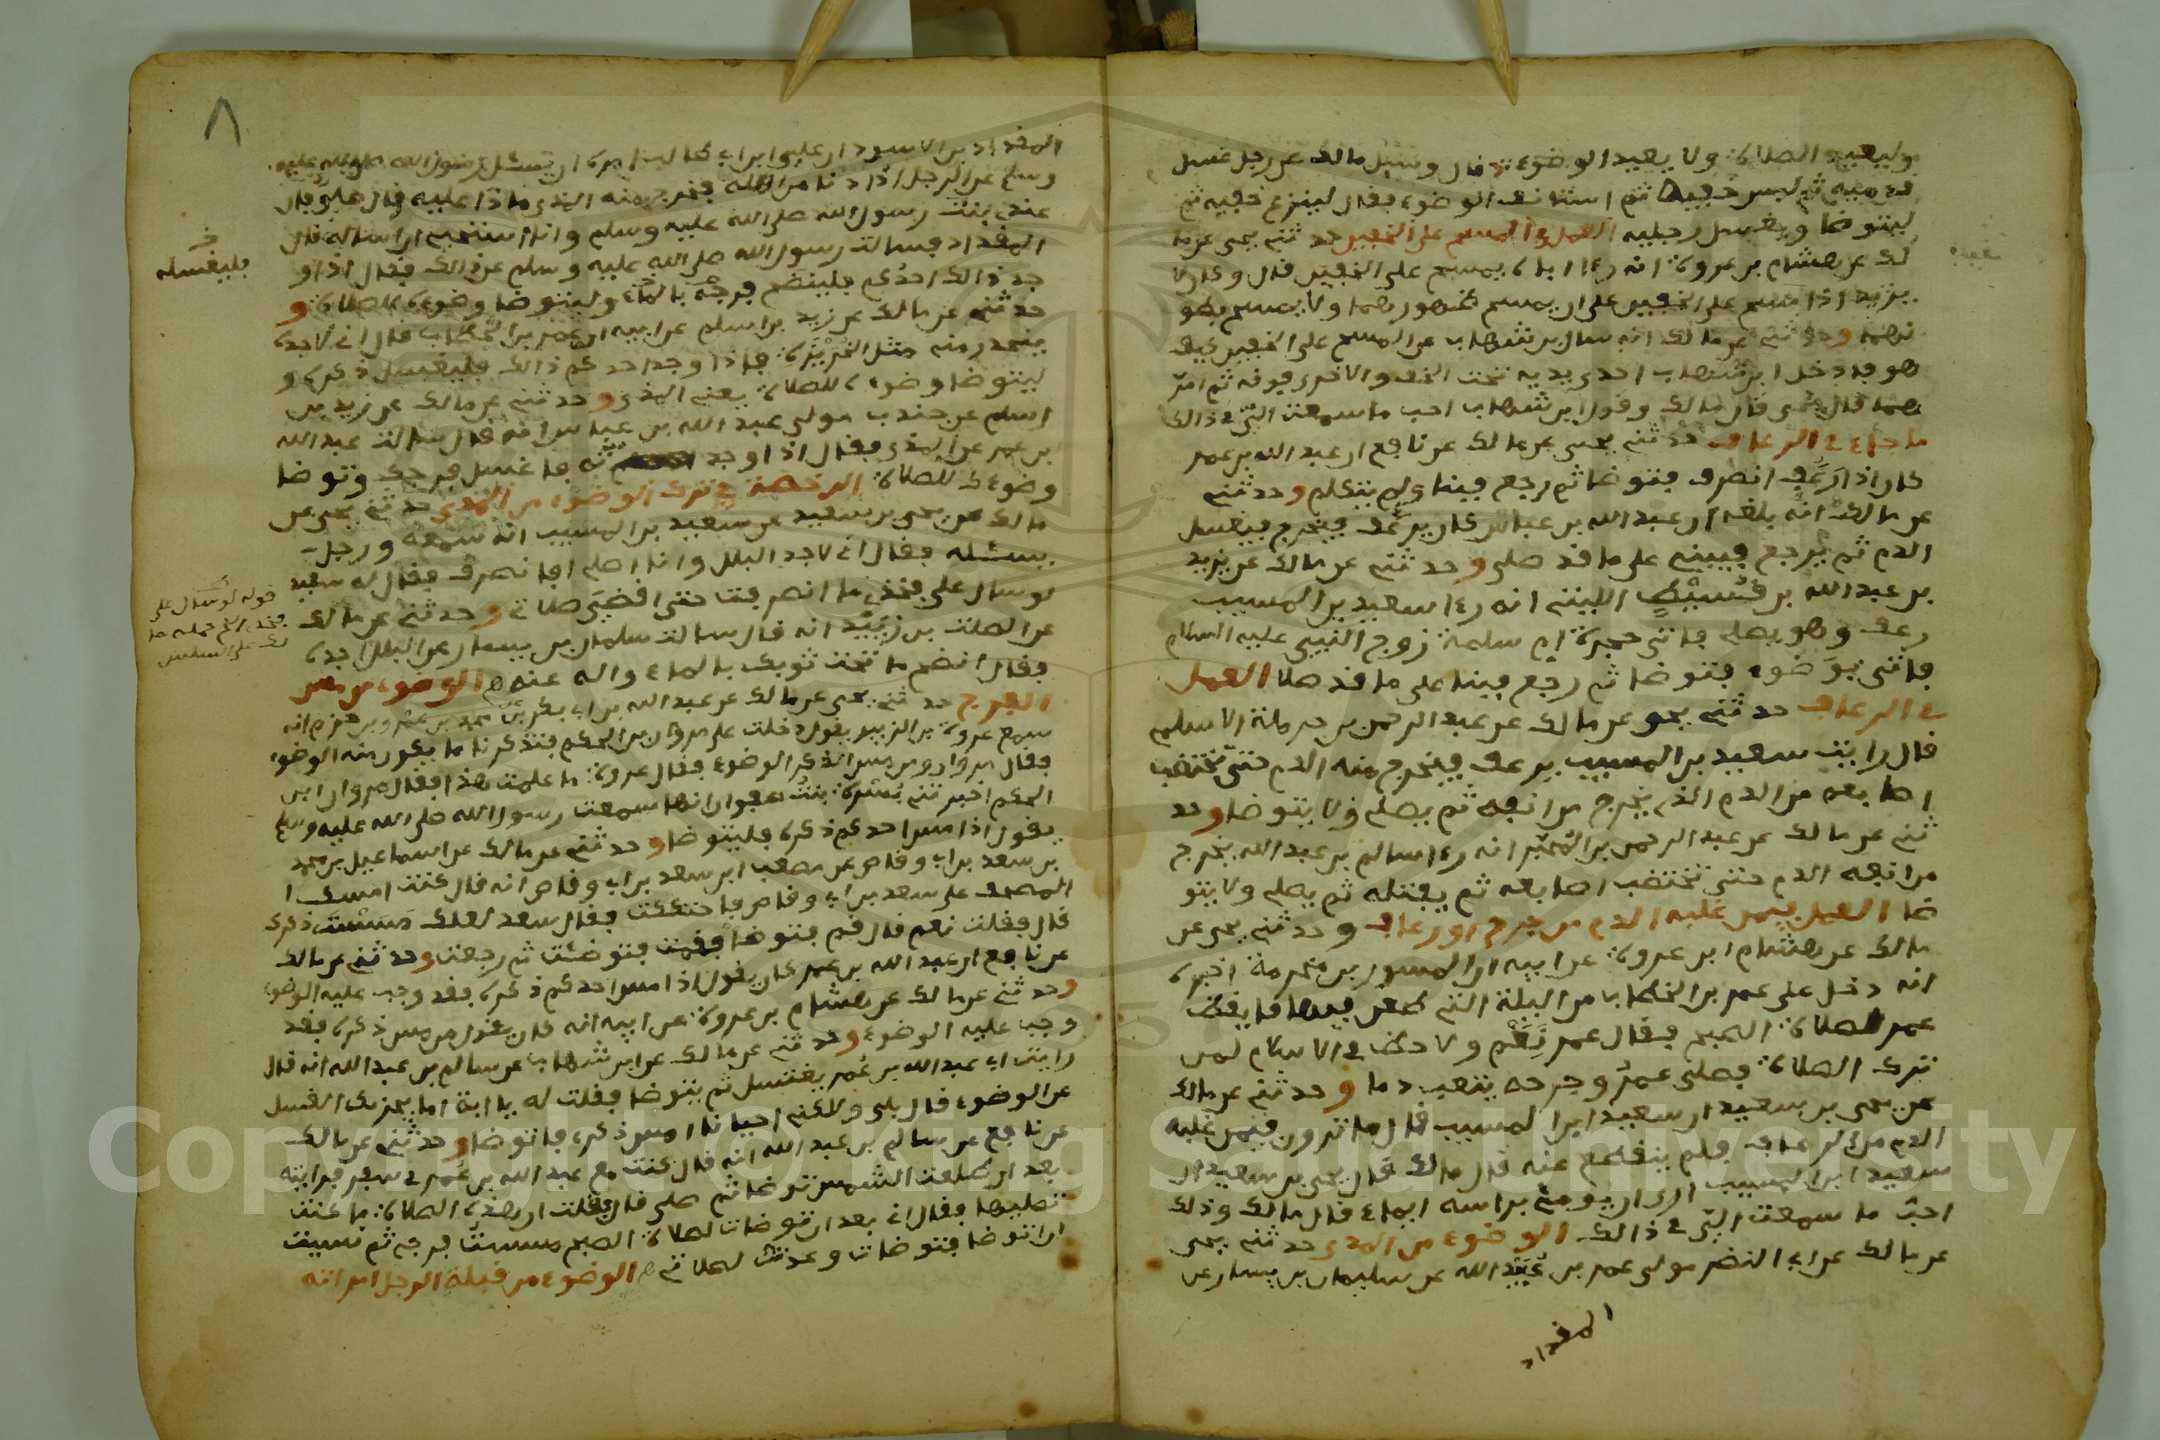 وليعيد الصلاة ولا يعيد الوضوء قال وسئل مالك عن رجل غسل
قدميه ثم لبس خفيه ثم استانف الوضوء فقال لينزع خفيه ثم
ليتوضا ويغسل رجليه العمل في المسح على الخفين حدثني يحيى عن ما
لك عن هشام بن عروة انه رءا اباه يمسح على الخفين قال وكان لا
يزيد اذا مسح على الخفين على ان يمسح ظهورهما ولا يمسح بطو
نهما وحدثني عن مالك انه سال بن شهاب عن المسح على الخفين كيف
هو فادخل ابن شهاب احدى يديه تحت الخف والاخرى فوقه ثم امرّ
هما قال يحيى قال مالك وقول ابن شهاب احب ما سمعت اليّ في ذالك
ما جاء في الرعاف حدثني يحيى عن مالك عن نافع ان عبد الله بن عمر
كان اذا رعف انصرف فتوضا ثم رجع فبنا ولم يتكلم وحدثني
عن مالك انه بلغه ان عبد الله بن عباس كان يرعف فيخرج فيغسل
الدم ثم يرجع فيبني على ما قد صلى وحدثني عن مالك عن يزيد
بن عبد الله بن قسيط الليثي انه رءا سعيد بن المسيب
رعف وهو يصلي فاتى حجرة ام سلمة زوج النبي عليه السلام
فاتي بوضوء فتوضا ثم رجع فبنا على ما قد صلا العمل
في الرعاف حدثني يحيى عن مالك عن عبد الرحمن بن حرملة الاسلمي
قال رايت سعيد بن المسيب يرعف فيخرج منه الدم حتى تختضب
اصابعه من الدم الذي يخرج من انفه ثم يصلي ولا يتوضا وحد
ثني عن مالك عن عبد الرحمن بن المجبّر انه رءا سالم بن عبد الله يخرج
من انفه الدم حتى تختضب اصابعه ثم يفتله ثم يصلي ولا يتو
ضا العمل فيمن غلبه الدم من جرح او رعاف وحدثني يحيى عن
مالك عن هشام ابن عروة عن ابيه ان المسور بن مخرمة اخبره
انه دخل على عمر بن الخطاب من اليلة التي طعن فيها فايقظ
عمر لصلاة الصبح فقال عمر نعم ولا حظ في الاسلام لمن
ترك الصلاة فصلى عمر وجرحه يثعب دما وحدثني عن مالك
عن يحيى بن سعيد ان سعيد ابن المسيب قال ما ترون فيمن غلبه
الدم من الرعاف فلم ينقطع عنه قال مالك قال يحيى بن سعيد قال
سعيد ابن المسيب ارى ان يومئ براسه ايماء قال مالك وذلك
احبّ ما سمعت اليّ في ذالك الوضوء من المذي حدثني يحيى
عن مالك عن ابي النضر مولى عمر بن عبيد الله عن سليمان بن يسار عن
المقداد
٨
المقداد بن الاسود ان علي ابن ابي طالب امره ان يسئل رسول الله صلى الله عليه
وسلم عن الرجل اذا دنا من اهله فخرج منه المذي ماذا عليه قال علي وقال
عندي بنت رسول الله صلى الله عليه وسلم وانا استحيي ان اساله قال
المقداد فسالت رسول الله صلى الله عليه وسلم عن ذالك فقال اذا و
جد ذالك احدكم فلينضح فرجه بالماء وليتوضا وضوءه للصلاة و
حدثني عن مالك عن زيد بن اسلم عن ابيه ان عمر بن الخطاب قال اني لاجده
ينحدر مني مثل الخريزة فاذا وجد احدكم ذالك فليغسل ذكره و
ليتوضا وضوءه للصلاة يعني المذي وحدثني عن مالك عن زيد بن
اسلم عن جندب مولى عبد الله بن عباس انه قال سالت عبد الله
بن عمر عن المذي فقال اذا وجدته فاغسل فرجك وتوضا
وضوءك للصلاة الرخصة في ترك الوضوء من المذي حدثني يحيى عن
مالك عن يحيى بن سعيد عن سعيد بن المسيب انه سمعه ورجل
يسئله فقال اني لاجد البلل وانا اصلي افانصرف فقال له سعيد
لو سال على فخذي ما انصرفت حتى اقضي صلاتي وحدثني عن مالك
عن الصلت بن زييد انه قال سالت سلمان بن يسار عن البلل اجده
فقال انضح ما تحت ثوبك بالماء واله عنه الوضوء من مس
الفرج حدثني يحيى عن مالك عن عبد الله بن ابي بكر بن محمد بن عمرو بن حزم انه
سمع عروة بن الزبير يقول دخلت على مروان بن الحكم فتذكرنا ما يكون منه الوضوء
فقال مروان ومن مس الذكر الوضوء فقال عروة ما علمت هذا فقال مروان ابن
الحكم اخبرتني بسرة بنت صفوان انها سمعت رسول الله صلى الله عليه وسلم
يقول اذا مس احدكم ذكره فليتوضا وحدثني عن مالك عن اسماعيل بن محمد
بن سعد بن ابي وقاص عن مصعب ابن سعد بن ابي وقاص انه قال كنت امسك ا
لمصحف على سعد بن ابي وقاص فاحتككت فقال سعد لعلك مسست ذكرك
قال فقلت نعم قال قم فتوضا فقمت فتوضئت ثم رجعت وحدثني عن مالك
عن نافع ان عبد الله بن عمر كان يقول اذا مس احدكم ذكره فقد وجب عليه الوضوء
وحدثني عن مالك عن هشام بن عروة عن ابيه انه كان يقول من مس ذكره فقد
وجب عليه الوضوء وحدثني عن مالك عن ابن شهاب عن سالم بن عبد الله انه قال
رايت ابي عبد الله بن عمر يغتسل ثم يتوضا فقلت له يا ابة اما يجزيك الغسل
عن الوضوء قال بلى ولاكني احيانا امس ذكري فاتوضا وحدثني عن مالك
عن نافع عن سالم بن عبد الله انه قال كنت مع عبد الله بن عمر في سفر فرايته
بعد ان طلعت الشمس توضا ثم صلى قال فقلت ان هذه الصلاة ما كنت
تصليها فقال اني بعد ان توضات لصلاة الصبح مسست فرجي ثم نسيت
ان اتوضا فتوضات وعدت لصلاتي الوضوء من قبلة الرجل امراته
خ
فليغسله
قوله لو سال على
Copyright © King Saud University